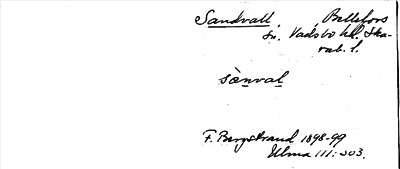 Sandvall, Bellefors
sn. Vadsbo hd. Ska-
rab. l.
sànval
F. Bergstrand 1898-99
Ulma 111:303.